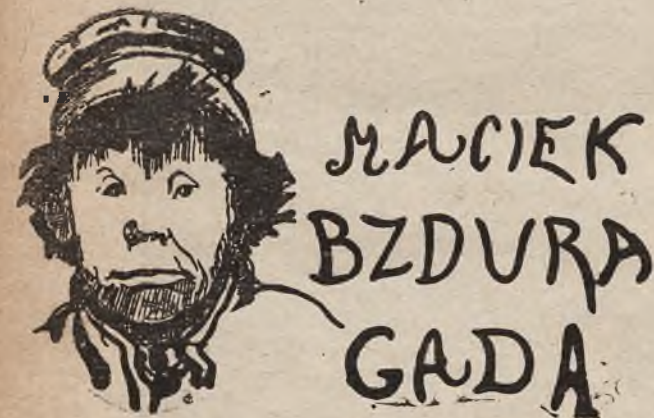 MACIEK
BZDURA
GADA